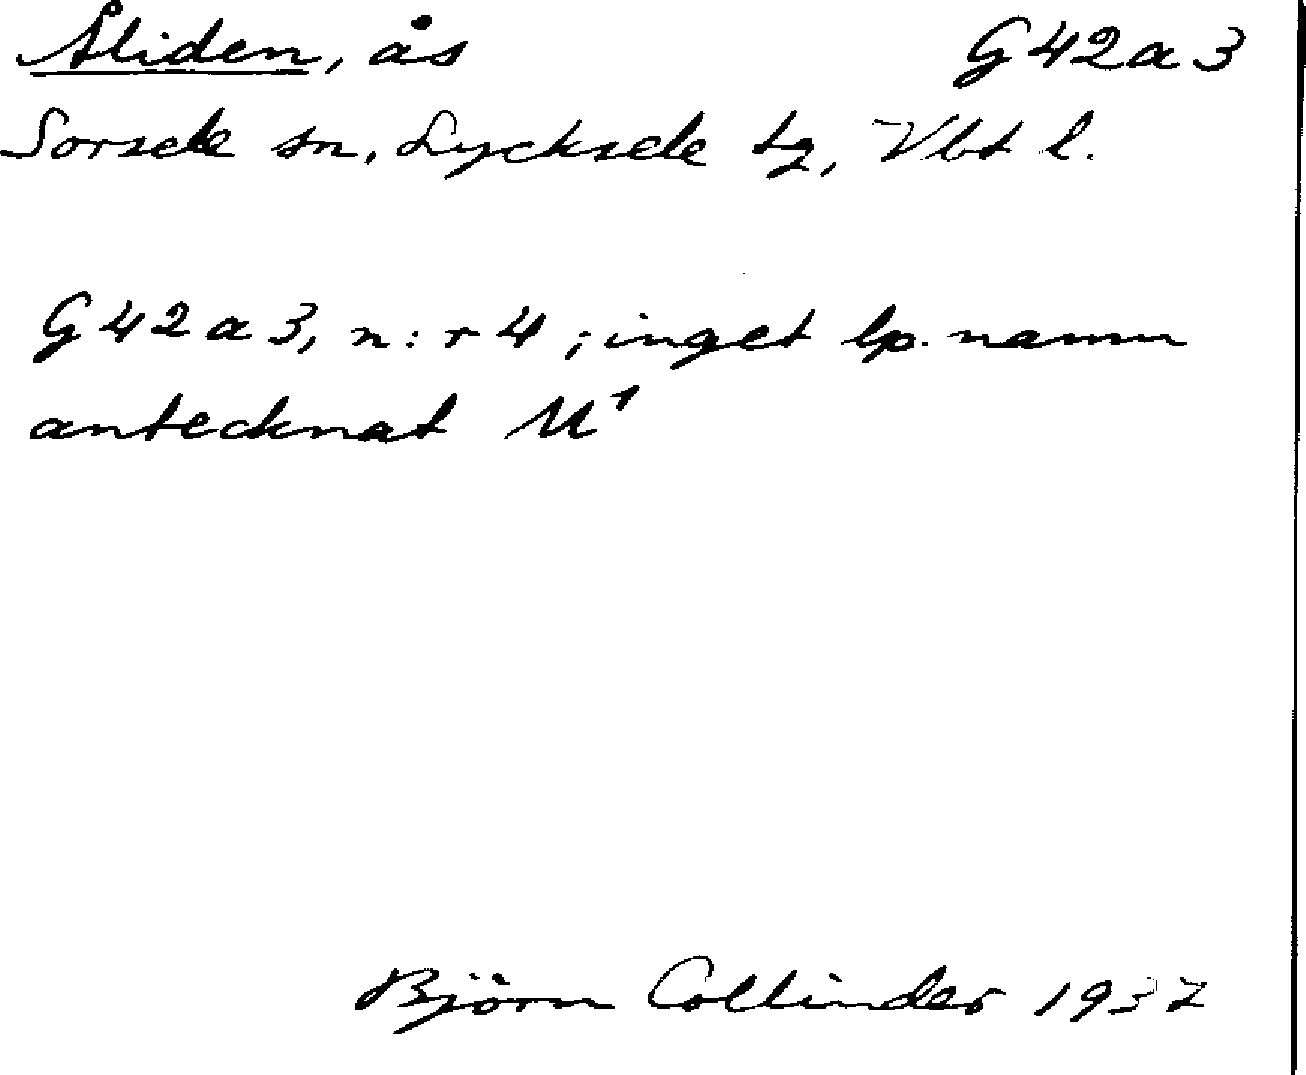 Åliden, ås G42a3
Sorsele sn, Lycksele tg, Vbt l.
G42a3, n:r 4; inget lp. namn
antecknat M¹
Björn Collinder 1937